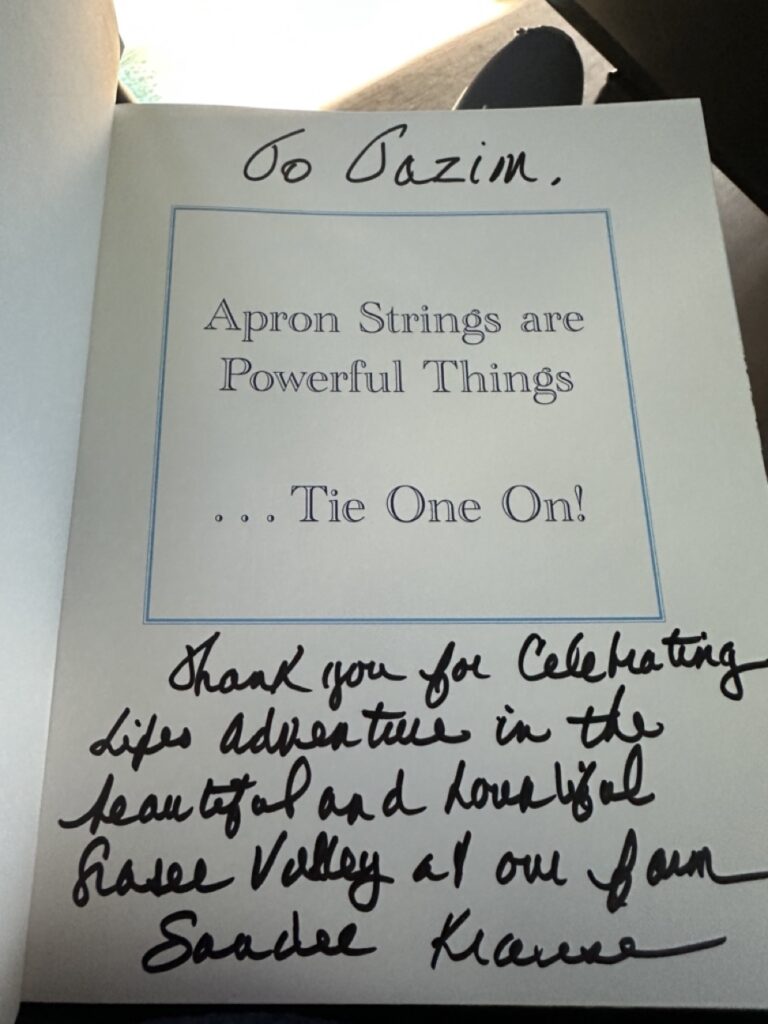 To Tazim.
Apron Strings are
Powerful Things
...Tie One On!
Thank you for Celebrating
Lifes adventure in the
beautiful and bountiful
Fraser Valley at our farm
Sandee Krause